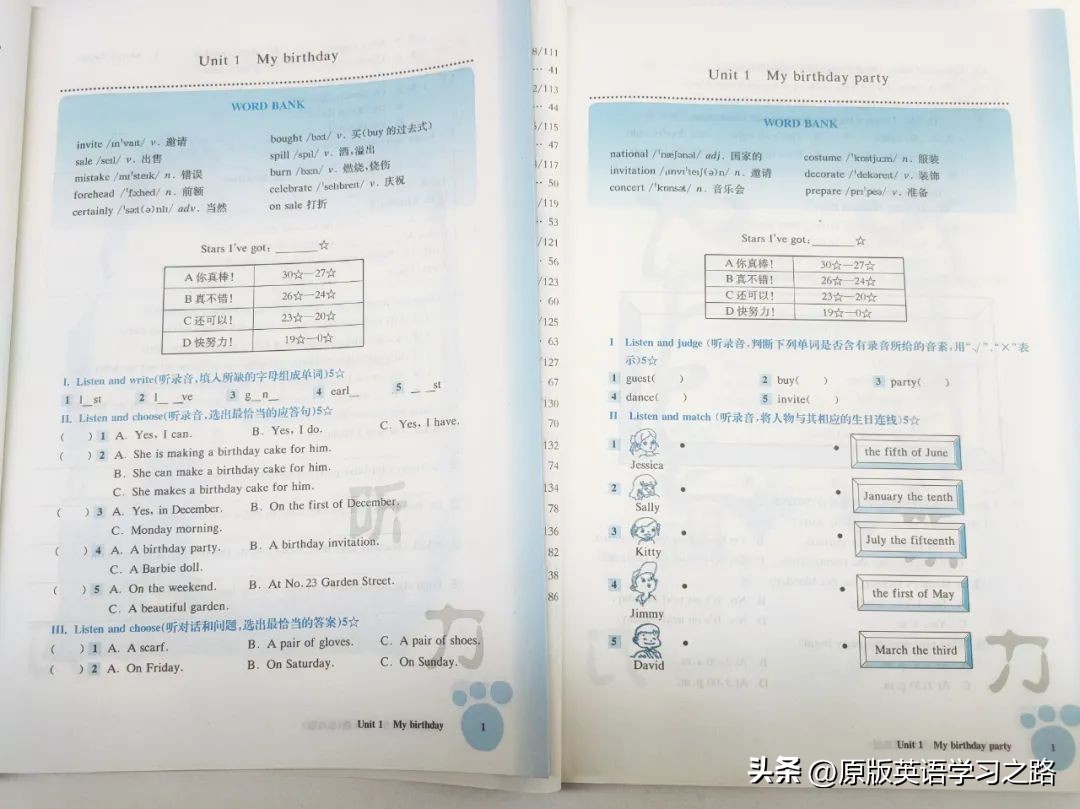 Unit 1 My birthday
WORD BANK
invite /ɪn'vaɪt/ v. 邀请
sale /seɪl/ v. 出售
mistake /mɪ'steɪk/ n. 错误
forehead /'fɔːhed/ n. 前额
certainly /'sɜːt(ə)nlɪ/ adv. 当然
bought /bɔːt/ v. 买(buy 的过去式)
spill /spɪl/ v. 洒,溢出
burn /bɜːn/ v. 燃烧,烧伤
celebrate /'selɪbreɪt/ v. 庆祝
on sale 打折
Stars I've got: ______☆
A 你真棒! 30☆—27☆
B 真不错! 26☆—24☆
C 还可以! 23☆—20☆
D 快努力! 19☆—0☆
I. Listen and write(听录音,填入所缺的字母组成单词)5☆
1 l__st 2 l__ __ve 3 g__n__ 4 earl__ 5 __ __st
II. Listen and choose(听录音,选出最恰当的应答句)5☆
( ) 1 A. Yes, I can. B. Yes, I do. C. Yes, I have.
( ) 2 A. She is making a birthday cake for him.
B. She can make a birthday cake for him.
C. She makes a birthday cake for him.
( ) 3 A. Yes, in December. B. On the first of December.
C. Monday morning.
( ) 4 A. A birthday party. B. A birthday invitation.
C. A Barbie doll.
( ) 5 A. On the weekend. B. At No. 23 Garden Street.
C. A beautiful garden.
III. Listen and choose(听对话和问题,选出最恰当的答案)5☆
( ) 1 A. A scarf. B. A pair of gloves. C. A pair of shoes.
( ) 2 A. On Friday. B. On Saturday. C. On Sunday.
听
力
Unit 1 My birthday 1
8/111
41
2/113
44
/115
47
/117
50
/119
53
/121
56
/123
60
/125
63
127
67
130
70
132
74
134
78
136
82
38
86
Unit 1 My birthday party
WORD BANK
national /'næʃənəl/ adj. 国家的
invitation /ˌɪnvɪ'teɪʃ(ə)n/ n. 邀请
concert /'kɒnsət/ n. 音乐会
costume /'kɒstjuːm/ n. 服装
decorate /'dekəreɪt/ v. 装饰
prepare /prɪ'peə/ v. 准备
Stars I've got: ______☆
A 你真棒! 30☆—27☆
B 真不错! 26☆—24☆
C 还可以! 23☆—20☆
D 快努力! 19☆—0☆
I Listen and judge (听录音,判断下列单词是否含有录音所给的音素,用“√”、“×”表
示)5☆
1 guest( ) 2 buy( ) 3 party( )
4 dance( ) 5 invite( )
II Listen and match (听录音,将人物与其相应的生日连线)5☆
1 Jessica the fifth of June
2 Sally January the tenth
3 Kitty July the fifteenth
4 Jimmy the first of May
5 David March the third
力
Unit 1 My birthday party 1
头条 @原版英语学习之路